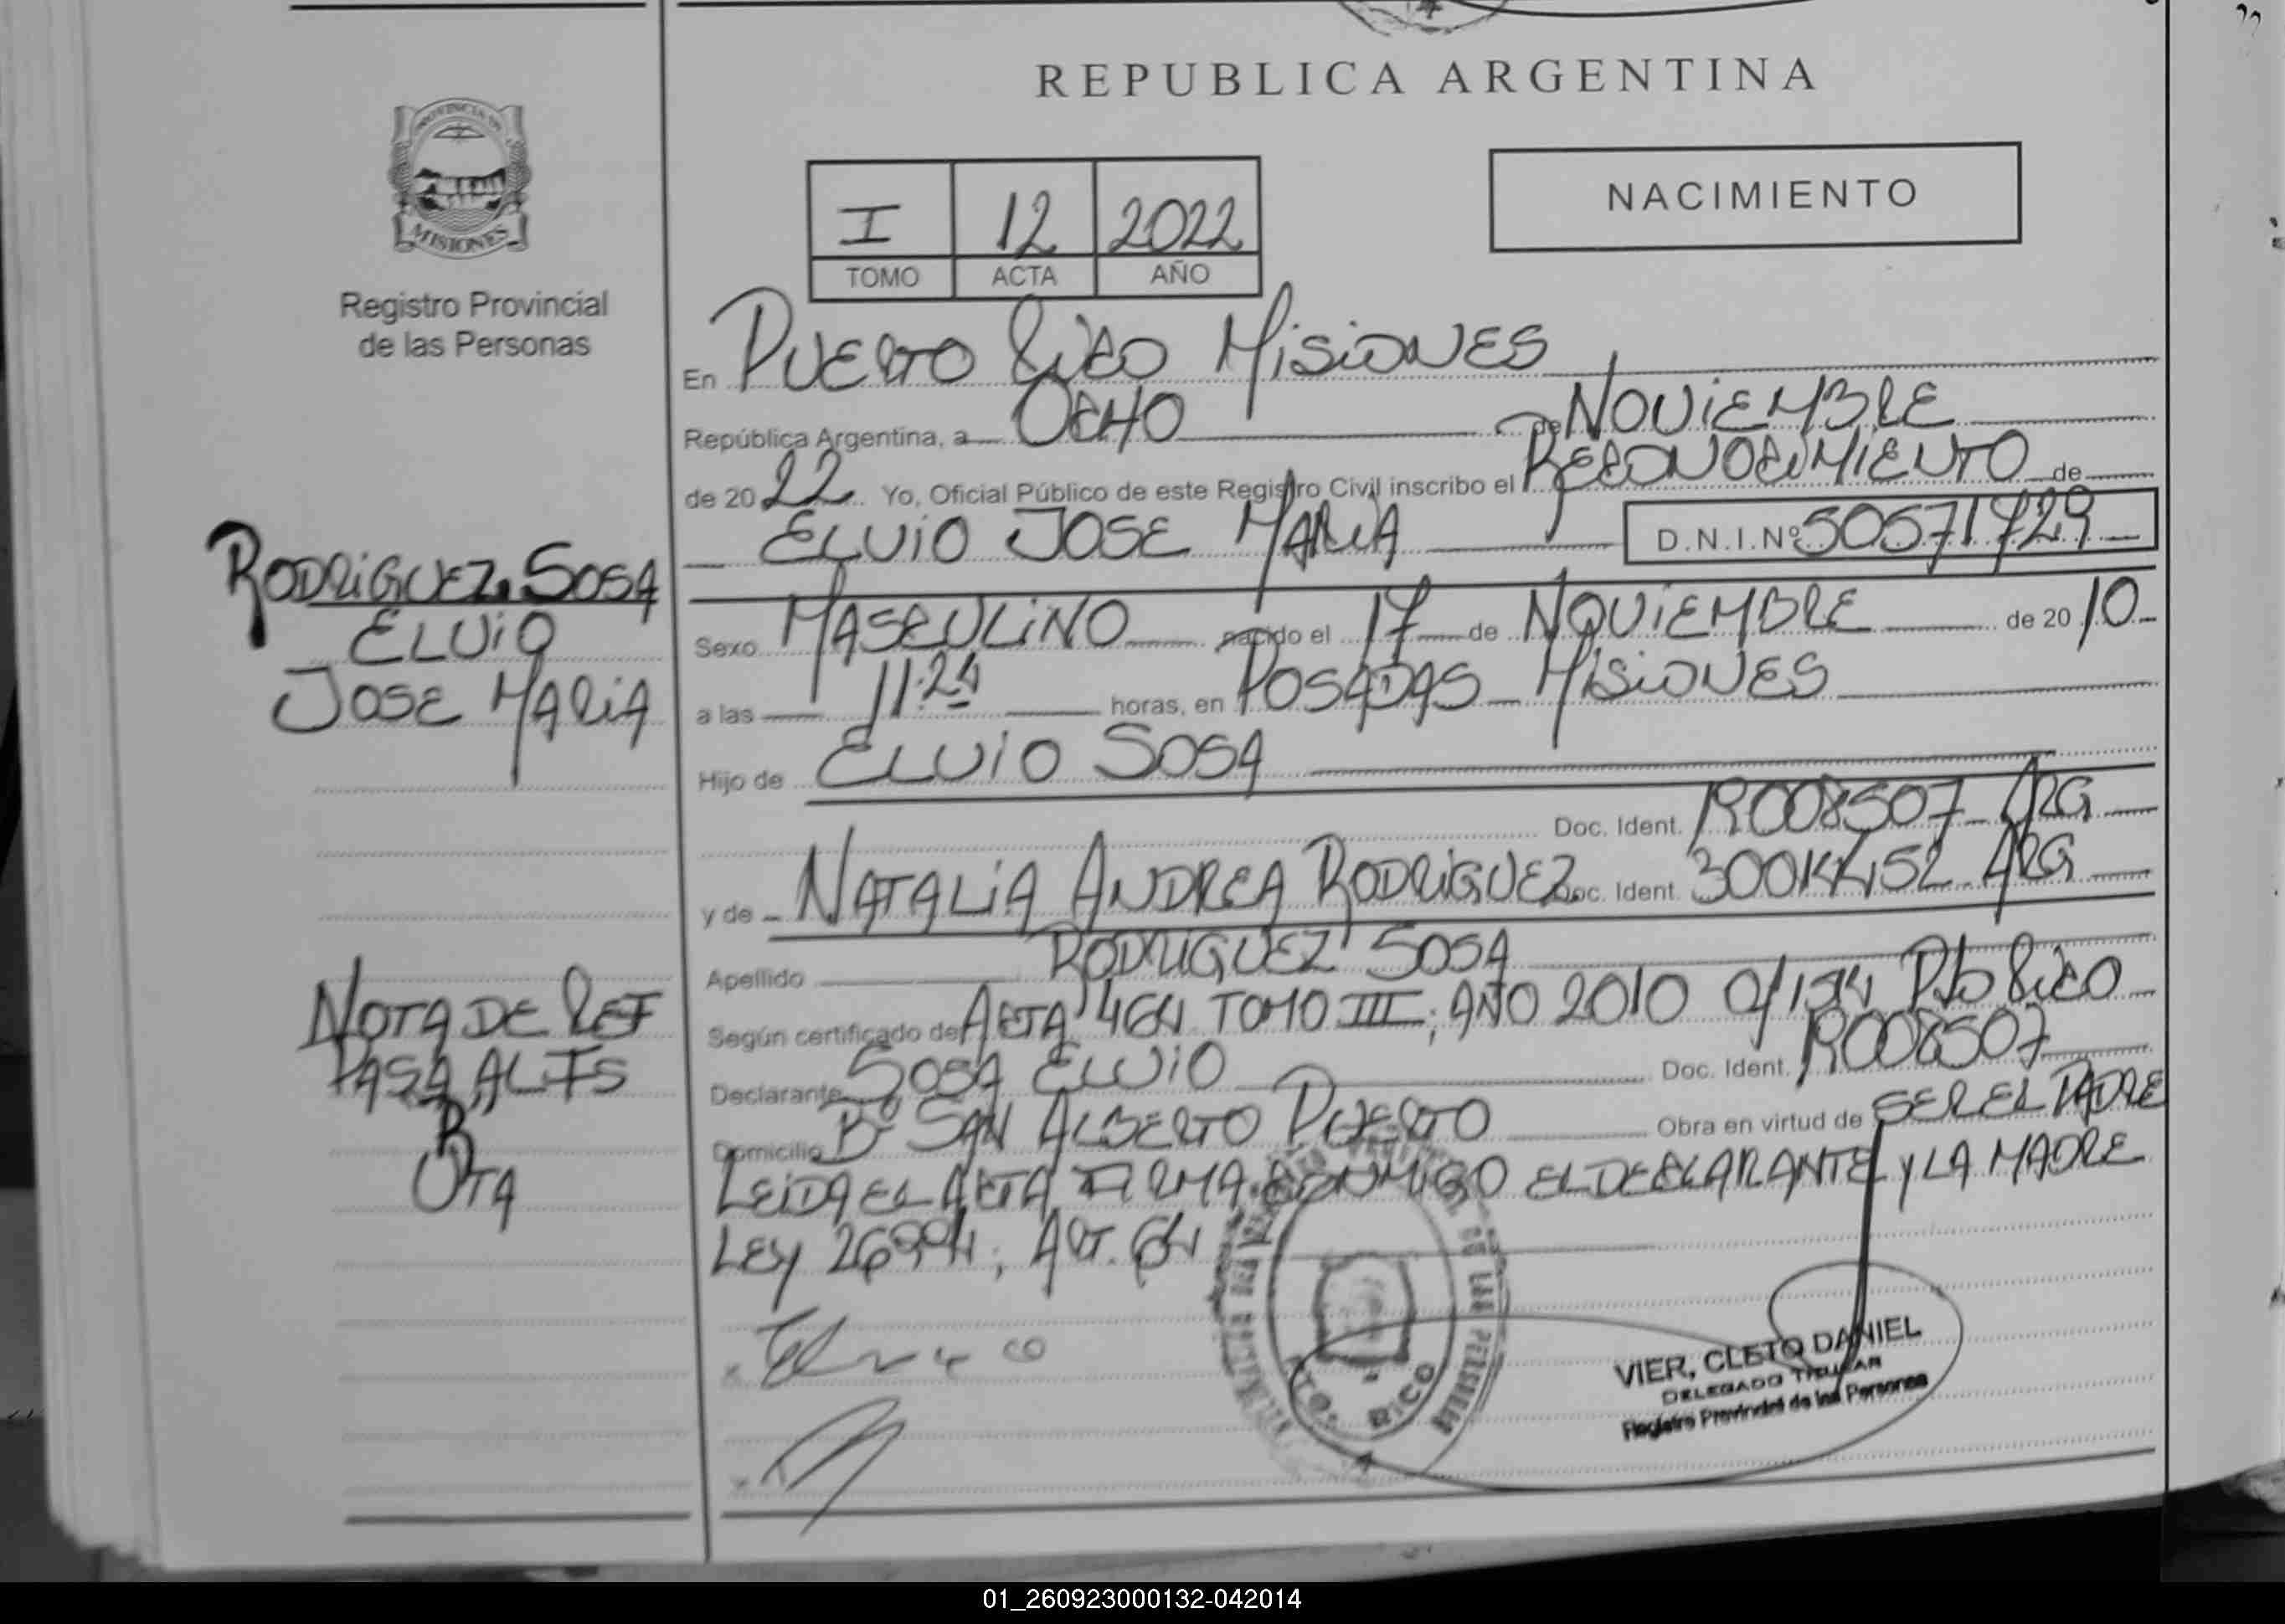 REPUBLICA ARGENTINA
PROVINCIA DE
MISIONES
Registro Provincial
de las Personas
NACIMIENTO
I 12 2022
TOMO ACTA AÑO
En PUERTO RICO MISIONES
República Argentina, a OCHO de NOVIEMBRE
de 20 22 Yo, Oficial Público de este Registro Civil inscribo el RECONOCIMIENTO de
ELVIO JOSE MARIA D.N.I.Nº 50571729
Sexo MASCULINO nacido el 17 de NOVIEMBRE de 20 10
a las 11:24 horas, en POSADAS MISIONES
Hijo de ELVIO SOSA
Doc. Ident. 19008507 ARG
y de NATALIA ANDREA RODRIGUEZ Doc. Ident. 30014452 ARG
Apellido RODRIGUEZ SOSA
Según certificado de ACTA 464 TOMO III; AÑO 2010 Pto RICO
Declarante SOSA ELVIO Doc. Ident. 19008507
Domicilio Bº SAN ALBERTO PUERTO Obra en virtud de SER EL PADRE
LEIDA EL ACTA FIRMA CONMIGO EL DECLARANTE Y LA MADRE
LEY 26994; ART. 64
RODRIGUEZ SOSA
ELVIO
JOSE MARIA
NOTA DE REF
PASA AL FS
B
OTA
PTO. RICO
VIER, CLETO DANIEL
DELEGADO TITULAR
Registro Provincial de las Personas
01_260923000132-042014